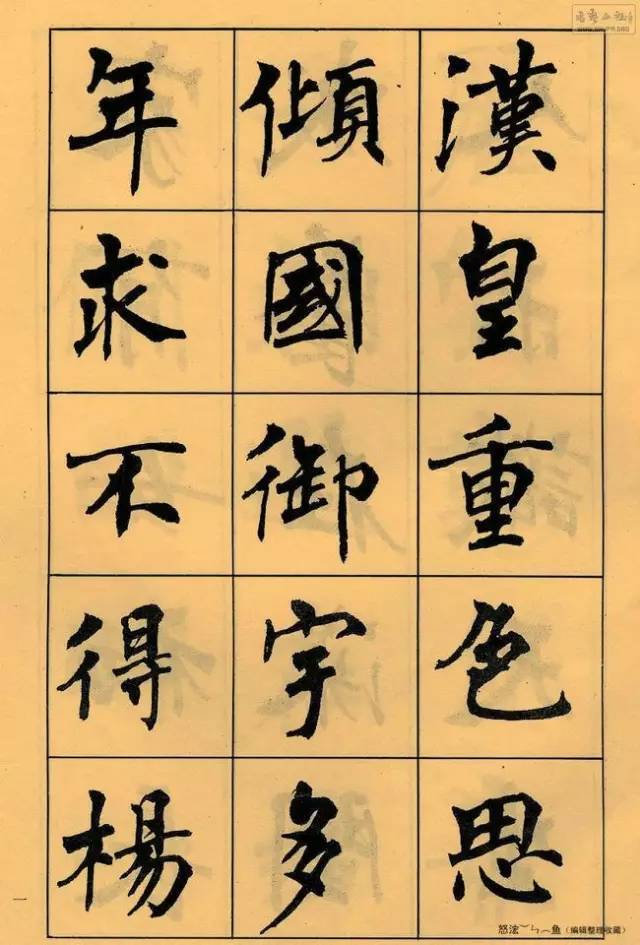 漢皇重色思
傾國御宇多
年求不得楊
一
怒浤︶ㄣ︵鱼（编辑整理收藏）